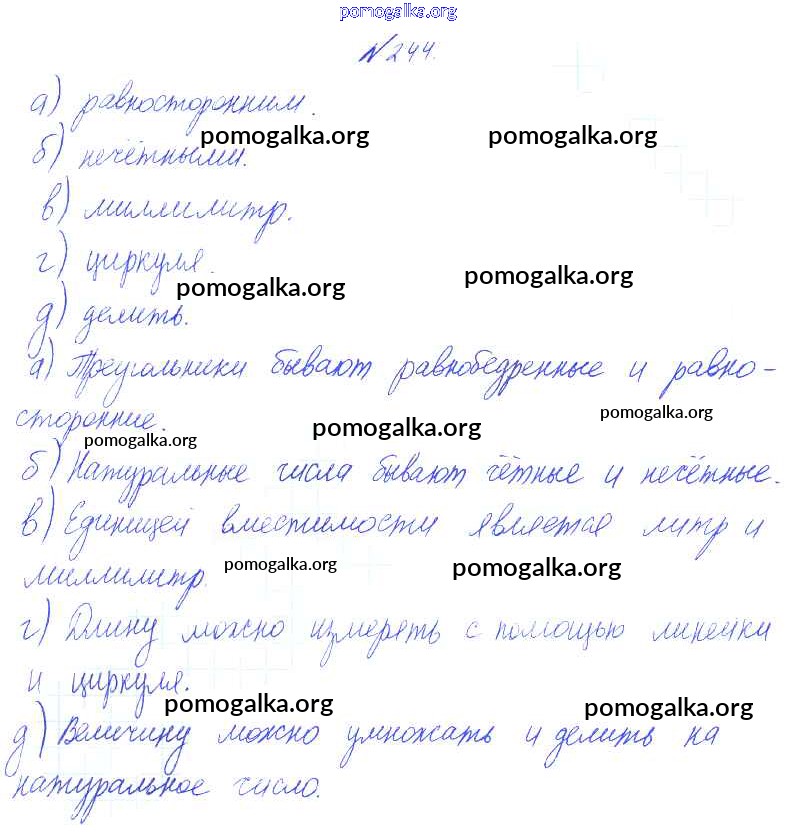 pomogalka.org
N 244.
а) равносторонним.
pomogalka.org pomogalka.org
б) нечётными.
в) миллилитр.
г) циркуля.
pomogalka.org pomogalka.org
д) делить.
а) Треугольники бывают равнобедренные и равно-
сторонние.
pomogalka.org pomogalka.org pomogalka.org
б) Натуральные числа бывают чётные и нечётные.
в) Единицей вместимости является литр и
миллилитр.
pomogalka.org pomogalka.org
г) Длину можно измерять с помощью линейки
и циркуля.
pomogalka.org pomogalka.org
д) Величину можно умножать и делить на
натуральное число.